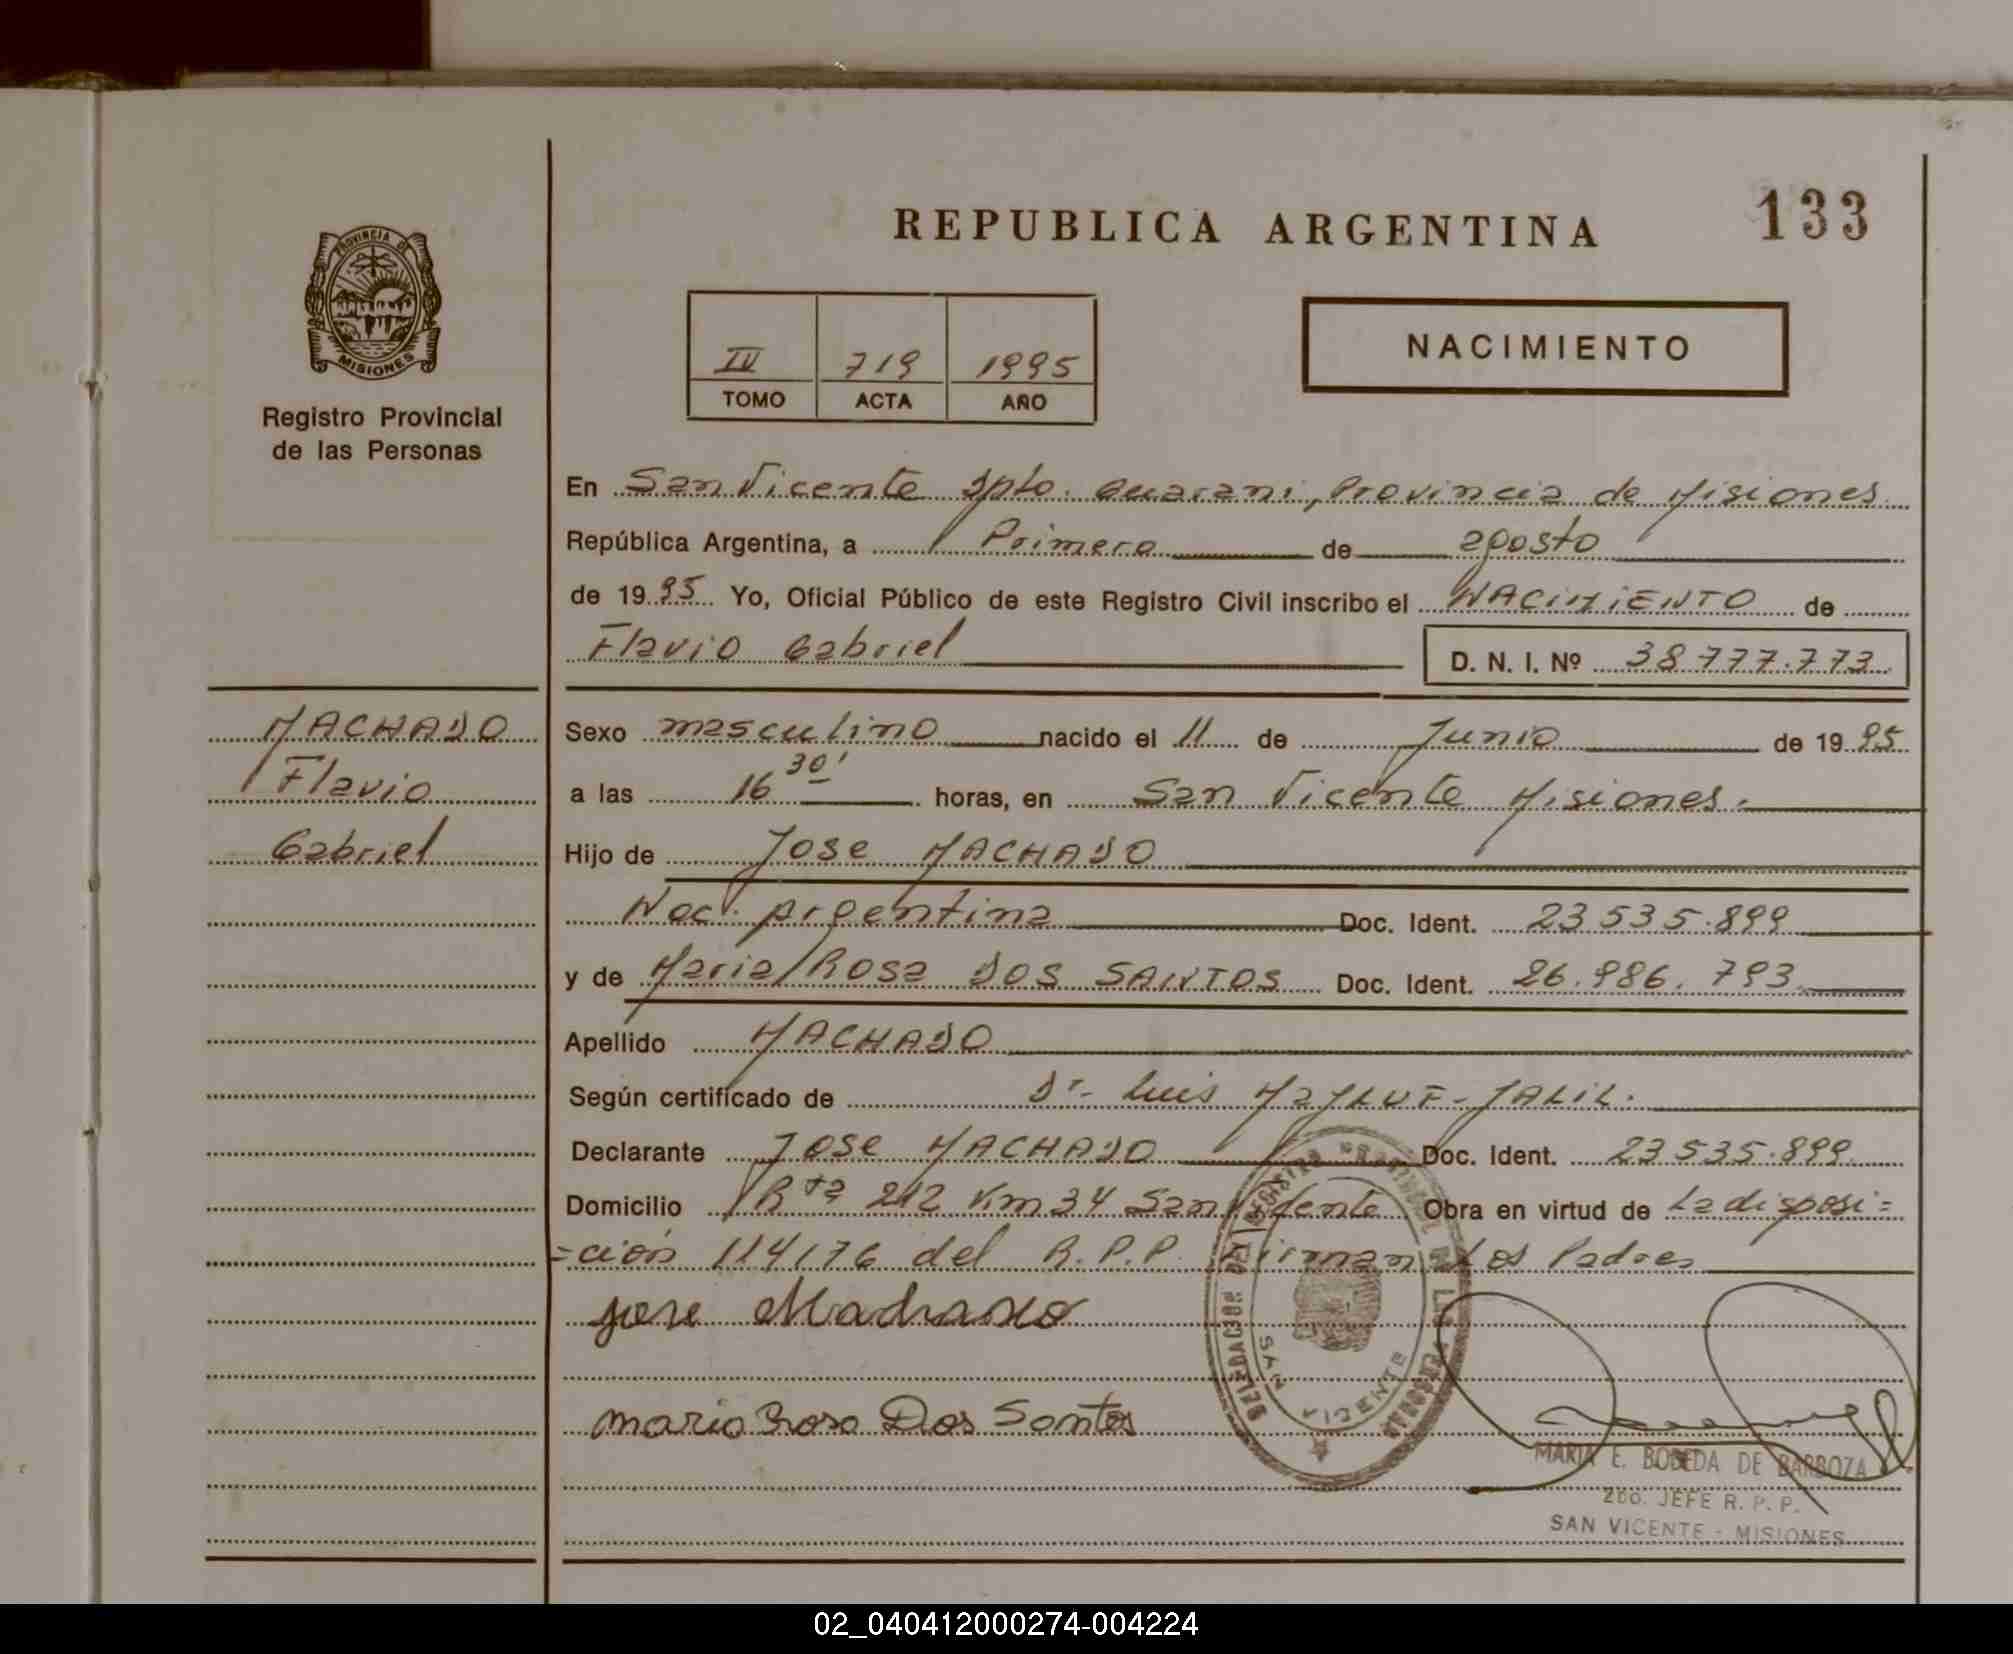 REPUBLICA ARGENTINA
133
PROVINCIA DE
MISIONES
Registro Provincial
de las Personas
IV 719 1995
TOMO ACTA AÑO
NACIMIENTO
En San Vicente Dpto. Guarani, Provincia de Misiones
República Argentina, a Primero de agosto
de 1995 Yo, Oficial Público de este Registro Civil inscribo el NACIMIENTO de
Flavio Gabriel D. N. I. Nº 38.777.773
MACHADO
Flavio
Gabriel
Sexo masculino nacido el 11 de Junio de 1995
a las 16 30' horas, en San Vicente Misiones.
Hijo de Jose MACHADO
Nac. Argentina Doc. Ident. 23.535.899
y de Maria Rosa DOS SANTOS Doc. Ident. 26.986.793
Apellido MACHADO
Según certificado de Dr. Luis JALIL.
Declarante Jose MACHADO Doc. Ident. 23.535.899
Domicilio Rta 212 Km 34 San Vicente Obra en virtud de La disposi=
=ción 114/76 del R.P.P. Firman Los Padres
Jose Machado
maria Rosa Dos Santos
DELEGACION DEL REGISTRO PROVINCIAL DE LAS PERSONAS
SAN VICENTE
MARIA E. BOBEDA DE BARBOZA
2do. JEFE R. P. P.
SAN VICENTE - MISIONES
02_040412000274-004224